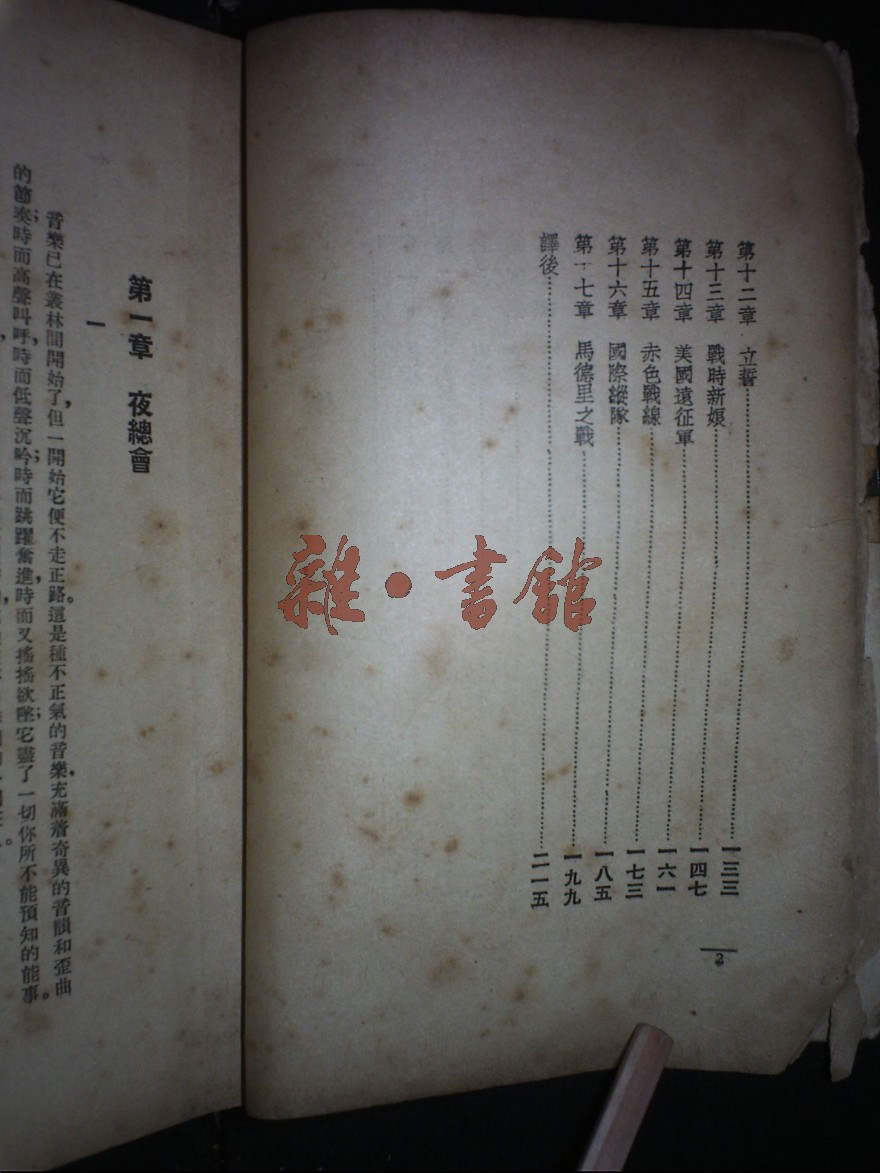 第十二章 立誓……一三三
第十三章 戰時新娘……一四七
第十四章 美國遠征軍……一六一
第十五章 赤色戰線……一七三
第十六章 國際縱隊……一八五
第十七章 馬德里之戰……一九九
譯後……二一五
2
雜·書館
第一章 夜總會
一
音樂已在叢林間開始了，但一開始它便不走正路。這是種不正氣的音樂，充滿著奇異的音韻和歪曲
的節奏；時而高聲叫呼，時而低聲沉吟；時而跳躍奮進，時而又搖搖欲墜；它盡了一切你所不能預知的能事。